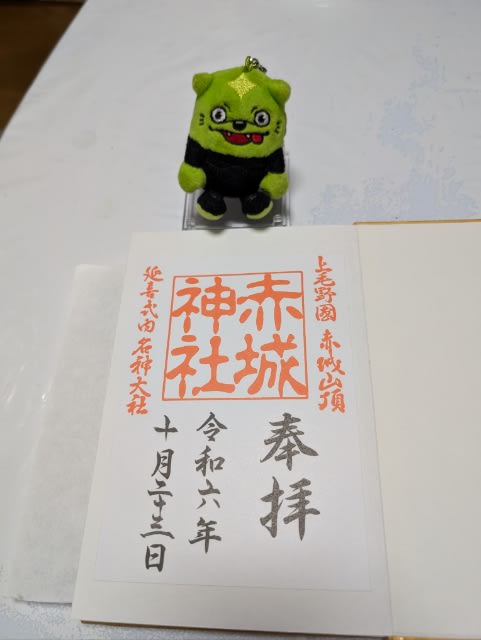 上毛野國 赤城山頂
赤城
神社
延喜式内 名神大社
奉拝
令和六年
十月二十三日